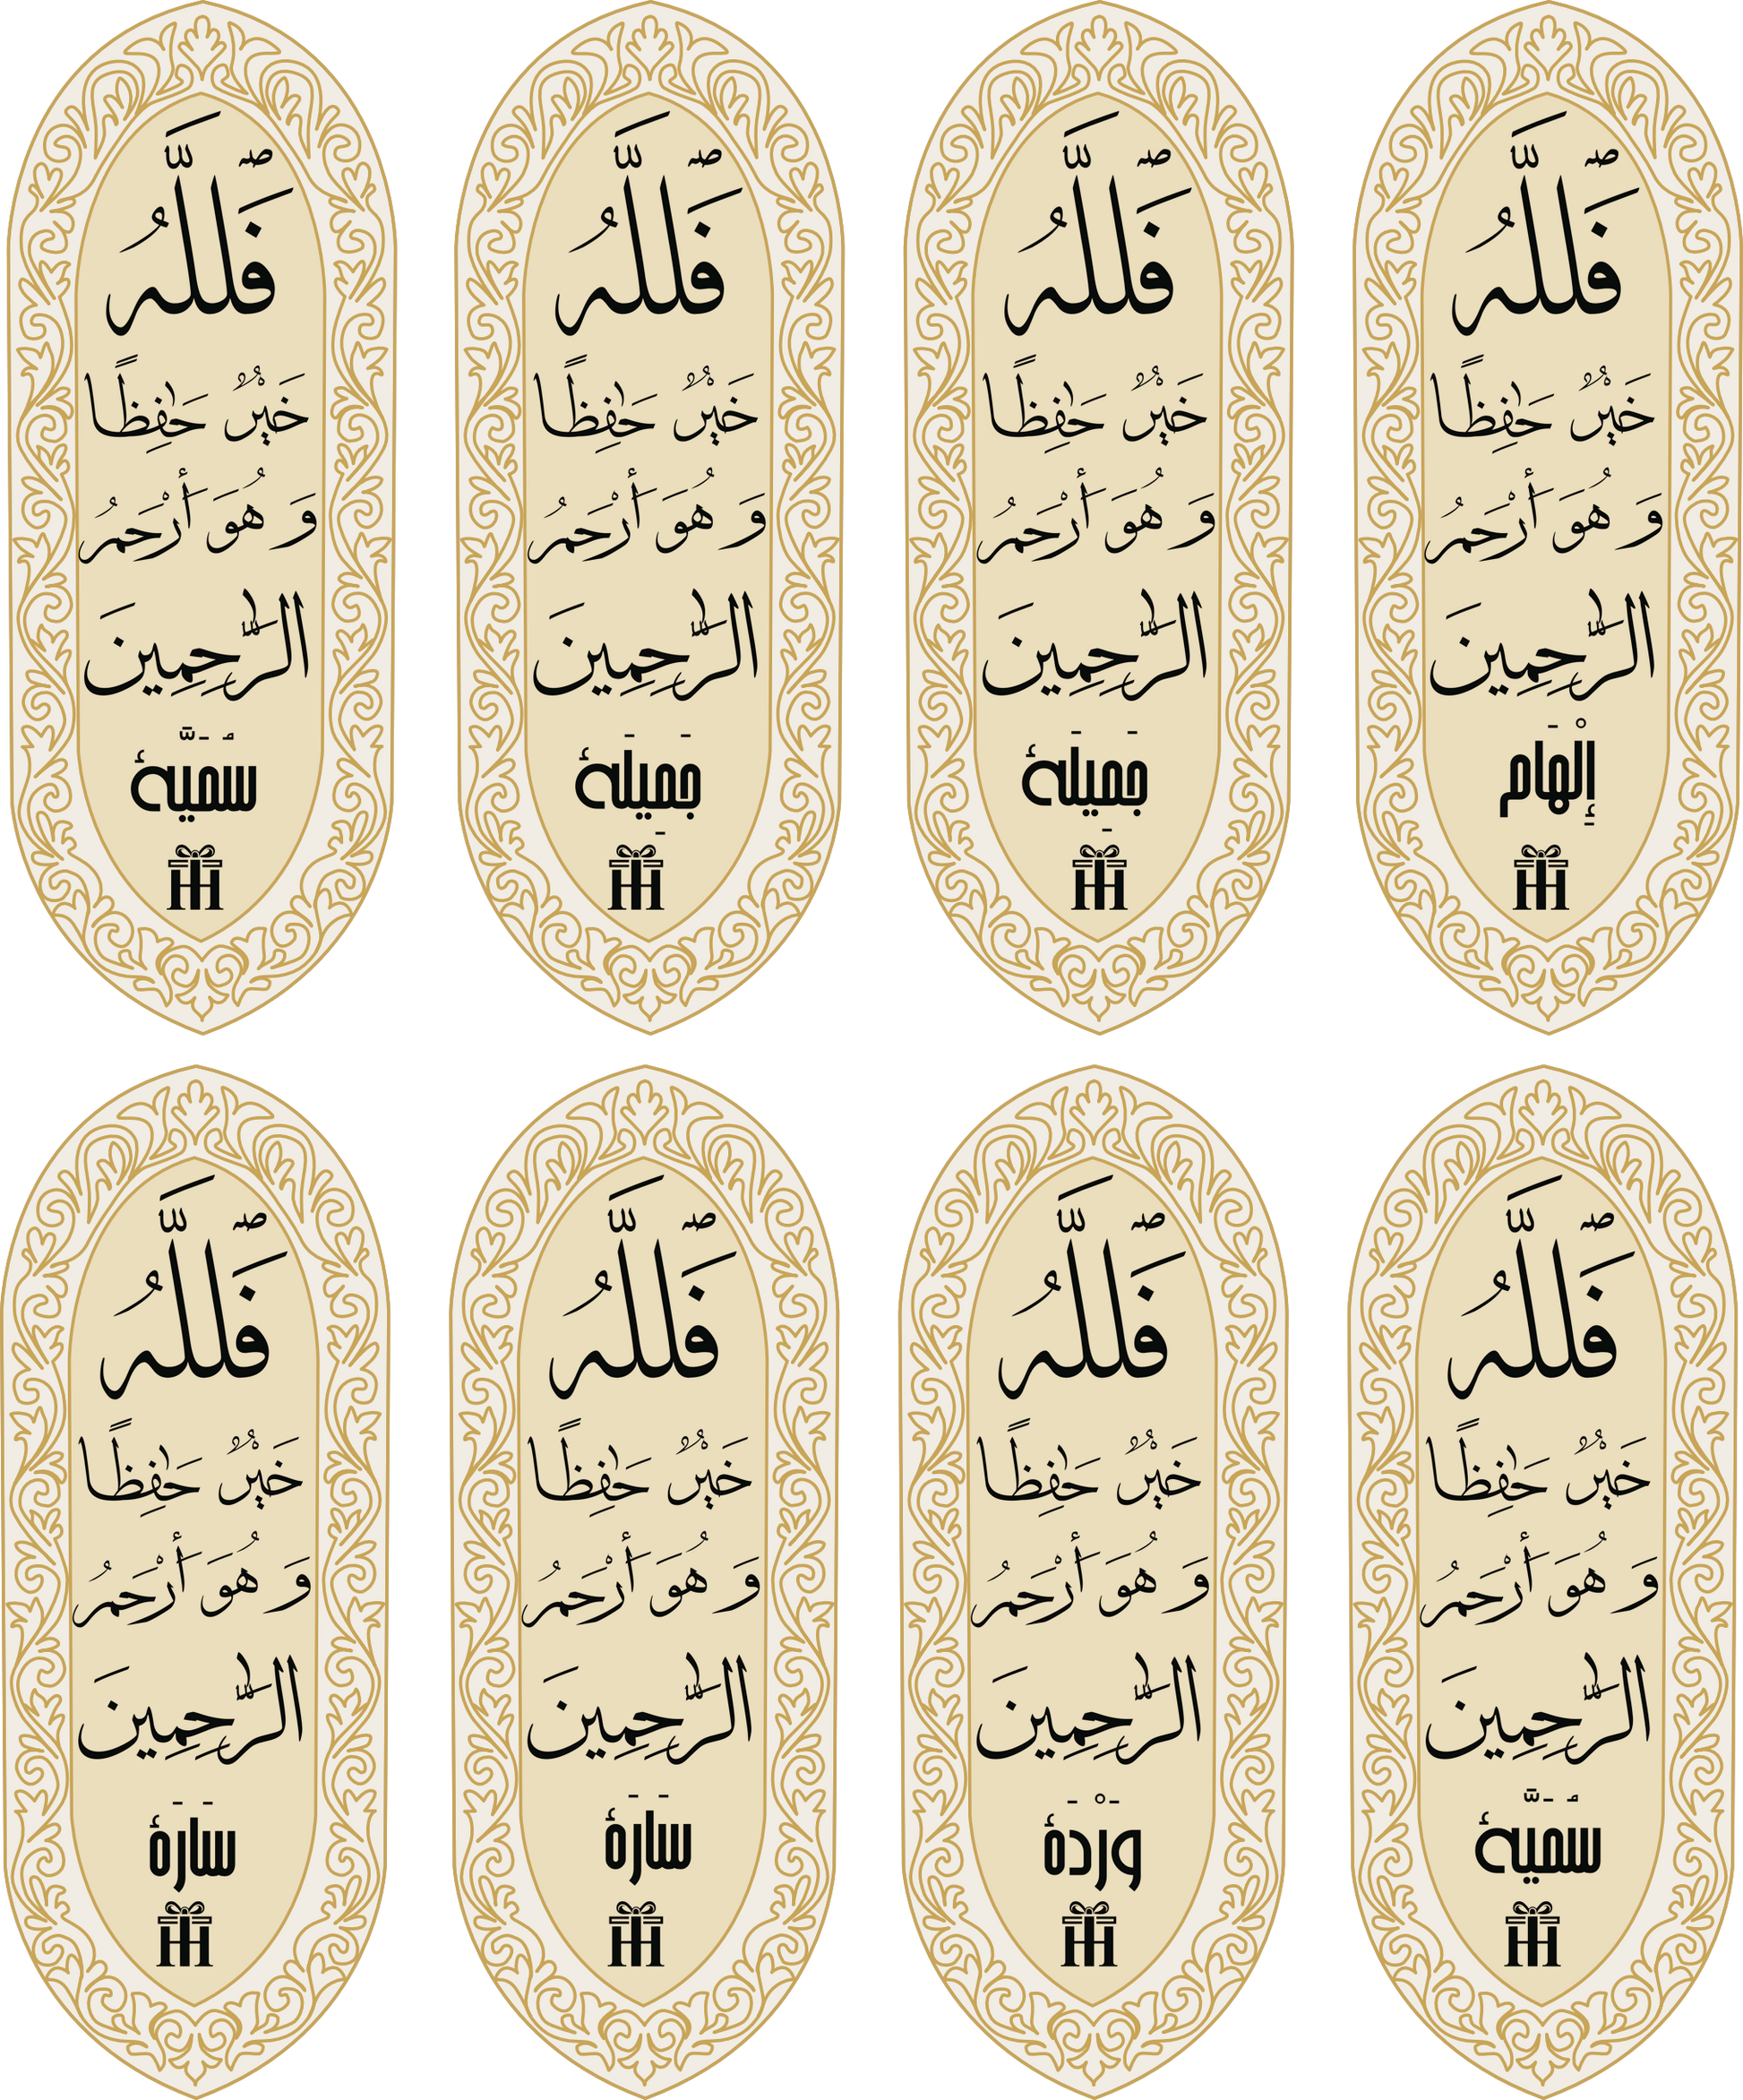 فَللَّهُ
خَيْرٌ حَٰفِظًا
وَ هُوَ أَرْحَمُ
الرَّٰحِمِينَ
إِلْهَام
فَللَّهُ
خَيْرٌ حَٰفِظًا
وَ هُوَ أَرْحَمُ
الرَّٰحِمِينَ
جَمِيلَة
فَللَّهُ
خَيْرٌ حَٰفِظًا
وَ هُوَ أَرْحَمُ
الرَّٰحِمِينَ
جَمِيلَة
فَللَّهُ
خَيْرٌ حَٰفِظًا
وَ هُوَ أَرْحَمُ
الرَّٰحِمِينَ
سُمَيَّة
فَللَّهُ
خَيْرٌ حَٰفِظًا
وَ هُوَ أَرْحَمُ
الرَّٰحِمِينَ
سُمَيَّة
فَللَّهُ
خَيْرٌ حَٰفِظًا
وَ هُوَ أَرْحَمُ
الرَّٰحِمِينَ
وَرْدَة
فَللَّهُ
خَيْرٌ حَٰفِظًا
وَ هُوَ أَرْحَمُ
الرَّٰحِمِينَ
سَارَة
فَللَّهُ
خَيْرٌ حَٰفِظًا
وَ هُوَ أَرْحَمُ
الرَّٰحِمِينَ
سَارَة